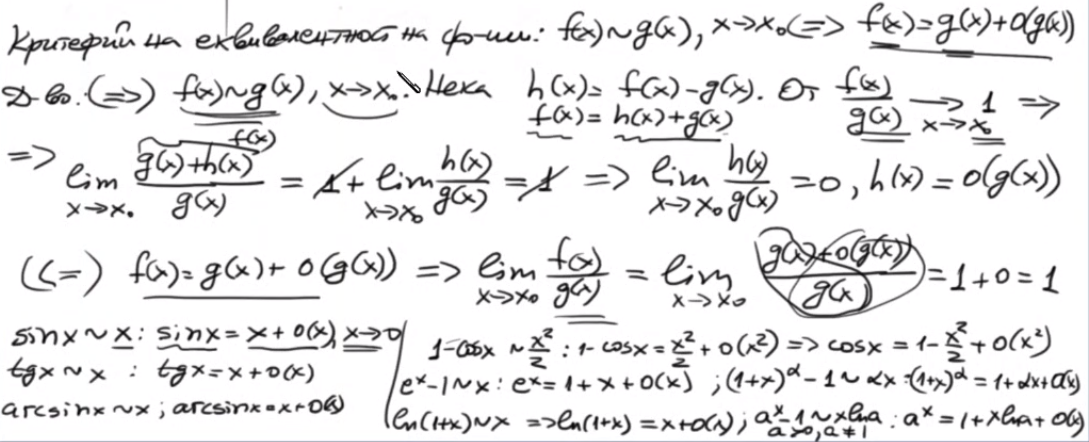 Критерий на еквивалентност на ф-ии: f(x)~g(x), x→x₀ <=> f(x)=g(x)+o(g(x))
Д-во. (=>) f(x)~g(x), x→x₀. Нека h(x)=f(x)-g(x). От f(x)/g(x) →_{x→x₀} 1 =>
f(x)=h(x)+g(x)
=> lim_{x→x₀} (g(x)+h(x))/g(x) = 1 + lim_{x→x₀} h(x)/g(x) = 1 => lim_{x→x₀} h(x)/g(x) = 0, h(x)=o(g(x))
f(x)
(<=) f(x)=g(x)+o(g(x)) => lim_{x→x₀} f(x)/g(x) = lim_{x→x₀} (g(x)+o(g(x)))/g(x) = 1+0 = 1
sinx ~ x : sinx = x + o(x), x→0
tgx ~ x : tgx = x + o(x)
arcsinx ~ x ; arcsinx = x + o(x)
1-cosx ~ x²/2 : 1-cosx = x²/2 + o(x²) => cosx = 1 - x²/2 + o(x²)
eˣ-1 ~ x : eˣ = 1+x+o(x) ; (1+x)^α - 1 ~ αx : (1+x)^α = 1+αx+o(x)
ln(1+x) ~ x => ln(1+x) = x+o(x) ; aˣ-1 ~ xlna : aˣ = 1+xlna+o(x)
a>0, a≠1